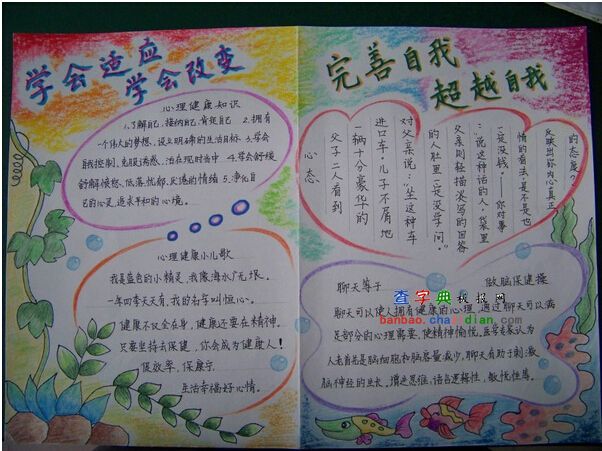 学会适应
学会改变
心理健康知识
1.了解自己,接纳自己,肯定自己 2.拥有
一个伟大的梦想,设立明确的生活目标 3.学会
自我控制,克服诱惑,活在现时当中 4.学会舒缓
舒解愤怒、低落、忧郁、厌倦的情绪 5.净化自
己的心灵,追求平和的心境。
心理健康小儿歌
我是蓝色的小精灵,我像海水广无垠。
一年四季天天有,我的名字叫恒心。
健康不仅全在身,健康还要在精神。
只要坚持去保健,你会成为健康人!
保健
生活幸福好心情。
完善自我
超越自我
的态度?
反映出你内心真正
情的看法,是不是也
一定没钱。——你对事
:“说这种话的人,口袋里
父亲则轻描淡写的回答
的人肚里一定没学问。”
对父亲说:“坐这种车
进口车,儿子不屑地
一辆十分豪华的
父子二人看到
心态
聊天等于
做脑保健操
聊天可以使人拥有健康的心理,通过聊天可以满
足部分的心理需要,使精神愉悦。医学专家认为
人老首先是脑细胞和脑容量减少,聊天有助于刺激
脑神经的生长,增进思维,语言逻辑性,敏捷性等。
查字典 板报网
banbao.chazidian.com